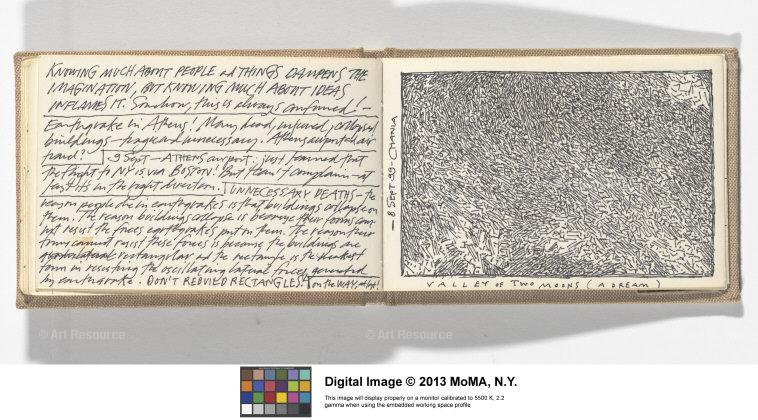 KNOWING MUCH ABOUT PEOPLE and THINGS DAMPENS THE
IMAGINATION, BUT KNOWING MUCH ABOUT IDEAS
INFLAMES IT. Somehow, this is always confirmed! —
Earthquake in Athens! Many dead, injured, collapsed
buildings — tragic and unnecessary. Athens airport — air
travel? 9 Sept — ATHENS airport: just learned that
the flight to NY is via BOSTON! But I can't complain — at
least it's in the right direction. UNNECESSARY DEATHS — the
reason people die in earthquakes is that buildings collapse on
them. The reason buildings collapse is because their forms can-
not resist the forces earthquakes put on them. The reason their
forms cannot resist these forces is because the buildings are
quadrilateral rectangular and the rectangle is the weakest
form in resisting the oscillating lateral forces generated
by earthquake. DON'T REBUILD RECTANGLES! on the WAY, at last!
— 8 SEPT 99 - CHANIA
VALLEY OF TWO MOONS (A DREAM)
© Art Resource
© Art Resource
Digital Image © 2013 MoMA, N.Y.
This image will display properly on a monitor calibrated to 5500 K, 2.2
gamma when using the embedded working space profile